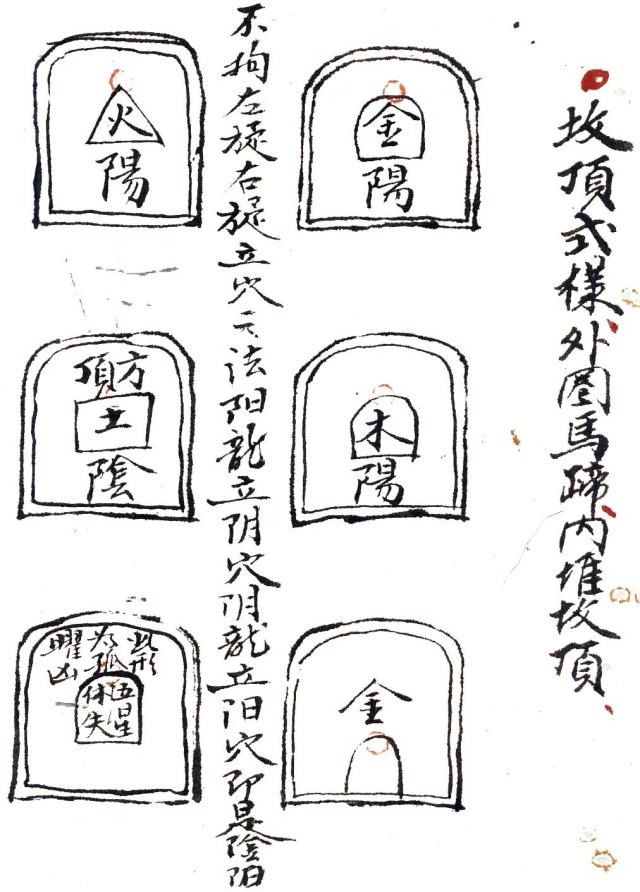 坟頂式樣外圈馬蹄内堆坟頂
金
陽
木
陽
金
不拘左旋右旋立穴之法阳龍立阴穴阴龍立阳穴即是陰阳
火
陽
方
頂
土
陰
此形
为孤
曜凶
五星
休失